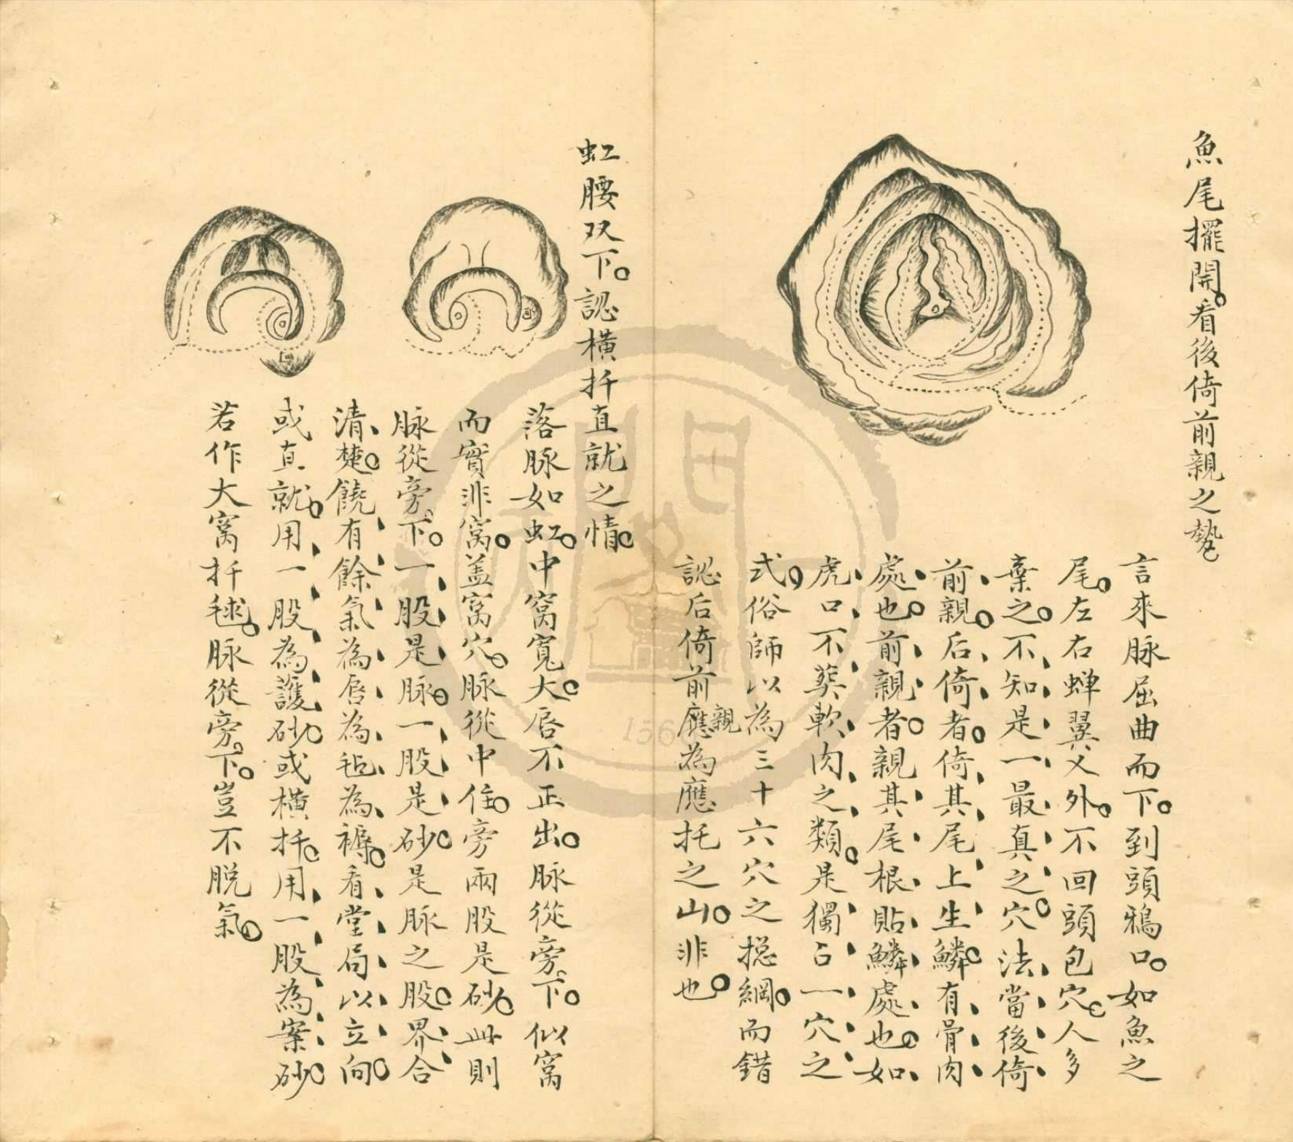 魚尾擺開。看後倚前親之勢
言來脉屈曲而下。到頭鴉口。如魚之
尾。左右蟬翼叉外。不回頭包穴。人多
棄之。不知是一最真之穴。法當後倚
前親。后倚者。倚其尾上生鱗。有骨肉
處也。前親者。親其尾根貼鱗處也。如
虎口不葬軟肉之類。是獨占一穴之
式。俗師以為三十六穴之摠綱。而錯
認后倚前應親為應托之山。非也。
虹腰双下。認橫扦直就之情。
落脉如虹。中窩寬大。唇不正出。脉從旁下。似窩
而實非窩。蓋窩穴。脉從中住。旁兩股是砂。此則
脉從旁下。一股是脉。一股是砂。是脉之股。界合
清楚。饒有餘氣為唇為毡為褥。看堂局以立向。
或直就。用一股為護砂。或橫扦。用一股為案砂。
若作大窩扦毬。脉從旁下。豈不脫氣。
1566